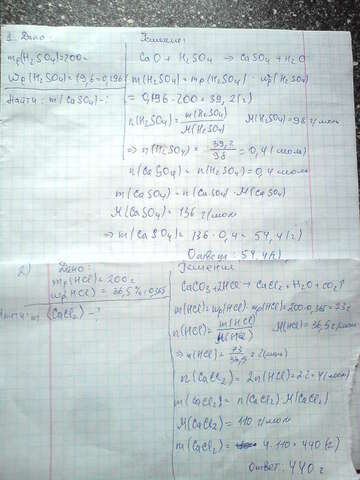 1. Дано:
mр(H₂SO₄)=200г
wр(H₂SO₄)=19,6=0,196
Найти: m(CaSO₄)-?
Решение:
CaO + H₂SO₄ → CaSO₄ + H₂O
m(H₂SO₄) = mр(H₂SO₄) · wр(H₂SO₄)
= 0,196 · 200 = 39,2(г)
n(H₂SO₄) = m(H₂SO₄)/M(H₂SO₄) M(H₂SO₄)=98 г/моль
⇒ n(H₂SO₄) = 39,2/98 = 0,4(моль)
n(CaSO₄) = n(H₂SO₄) = 0,4 моль
m(CaSO₄) = n(CaSO₄) · M(CaSO₄)
M(CaSO₄) = 136 г/моль
⇒ m(CaSO₄) = 136 · 0,4 = 54,4(г)
Ответ: 54,4(г)
2) Дано:
mр(HCl) = 200г
wр(HCl) = 36,5% = 0,365
m(CaCl₂) -?
Решение
CaCO₃+2HCl → CaCl₂ + H₂O + CO₂↑
m(HCl)=mр(HCl)·wр(HCl)=200·0,365=73г
n(HCl)= m(HCl)/M(HCl) M(HCl)=36,5 г/моль
⇒ n(HCl) = 73/36,5 = 2(моль)
n(CaCl₂) = 2n(HCl) = 2·2=4(моль)
m(CaCl₂) = n(CaCl₂)·M(CaCl₂)
M(CaCl₂) = 110 г/моль
m(CaCl₂) = 4·110 = 440(г)
Ответ: 440 г